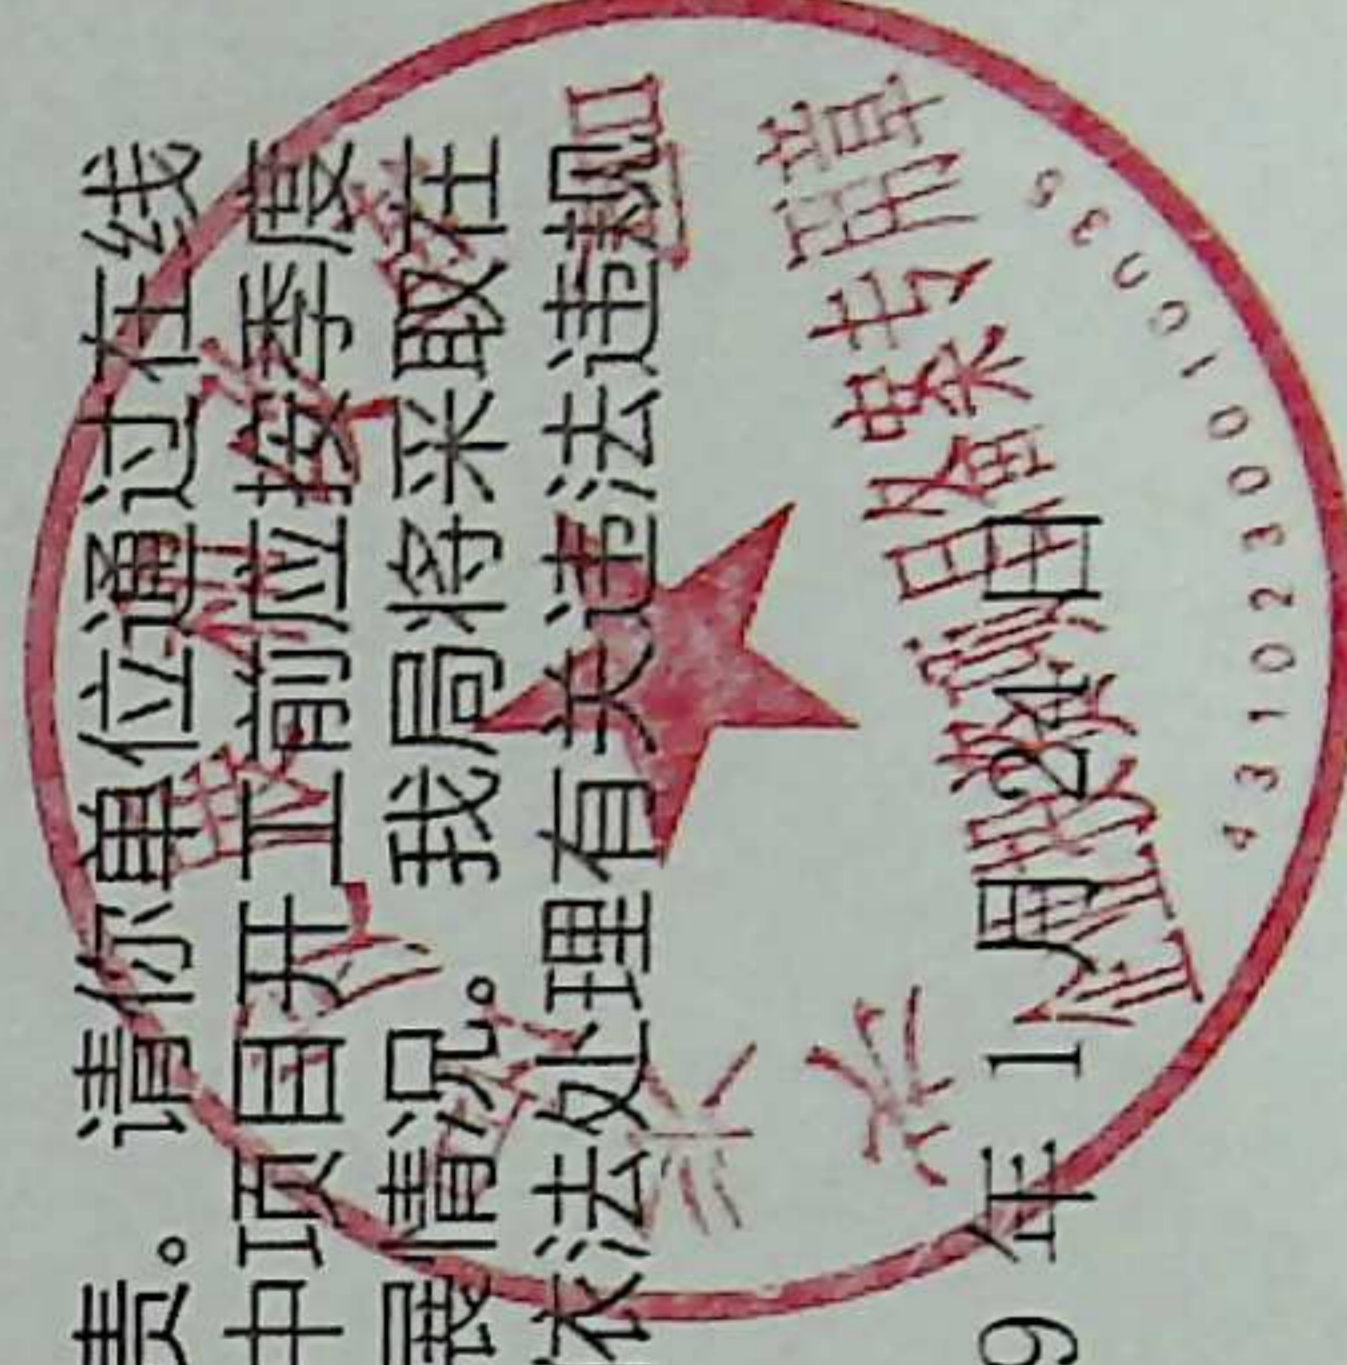 责。请你单位通过在线
中项目开工前应按季度
展情况。我局将采取在
依法处理有关违法违规
9 年 1 月 21 日
企业投资项目备案专用章
4310230010035